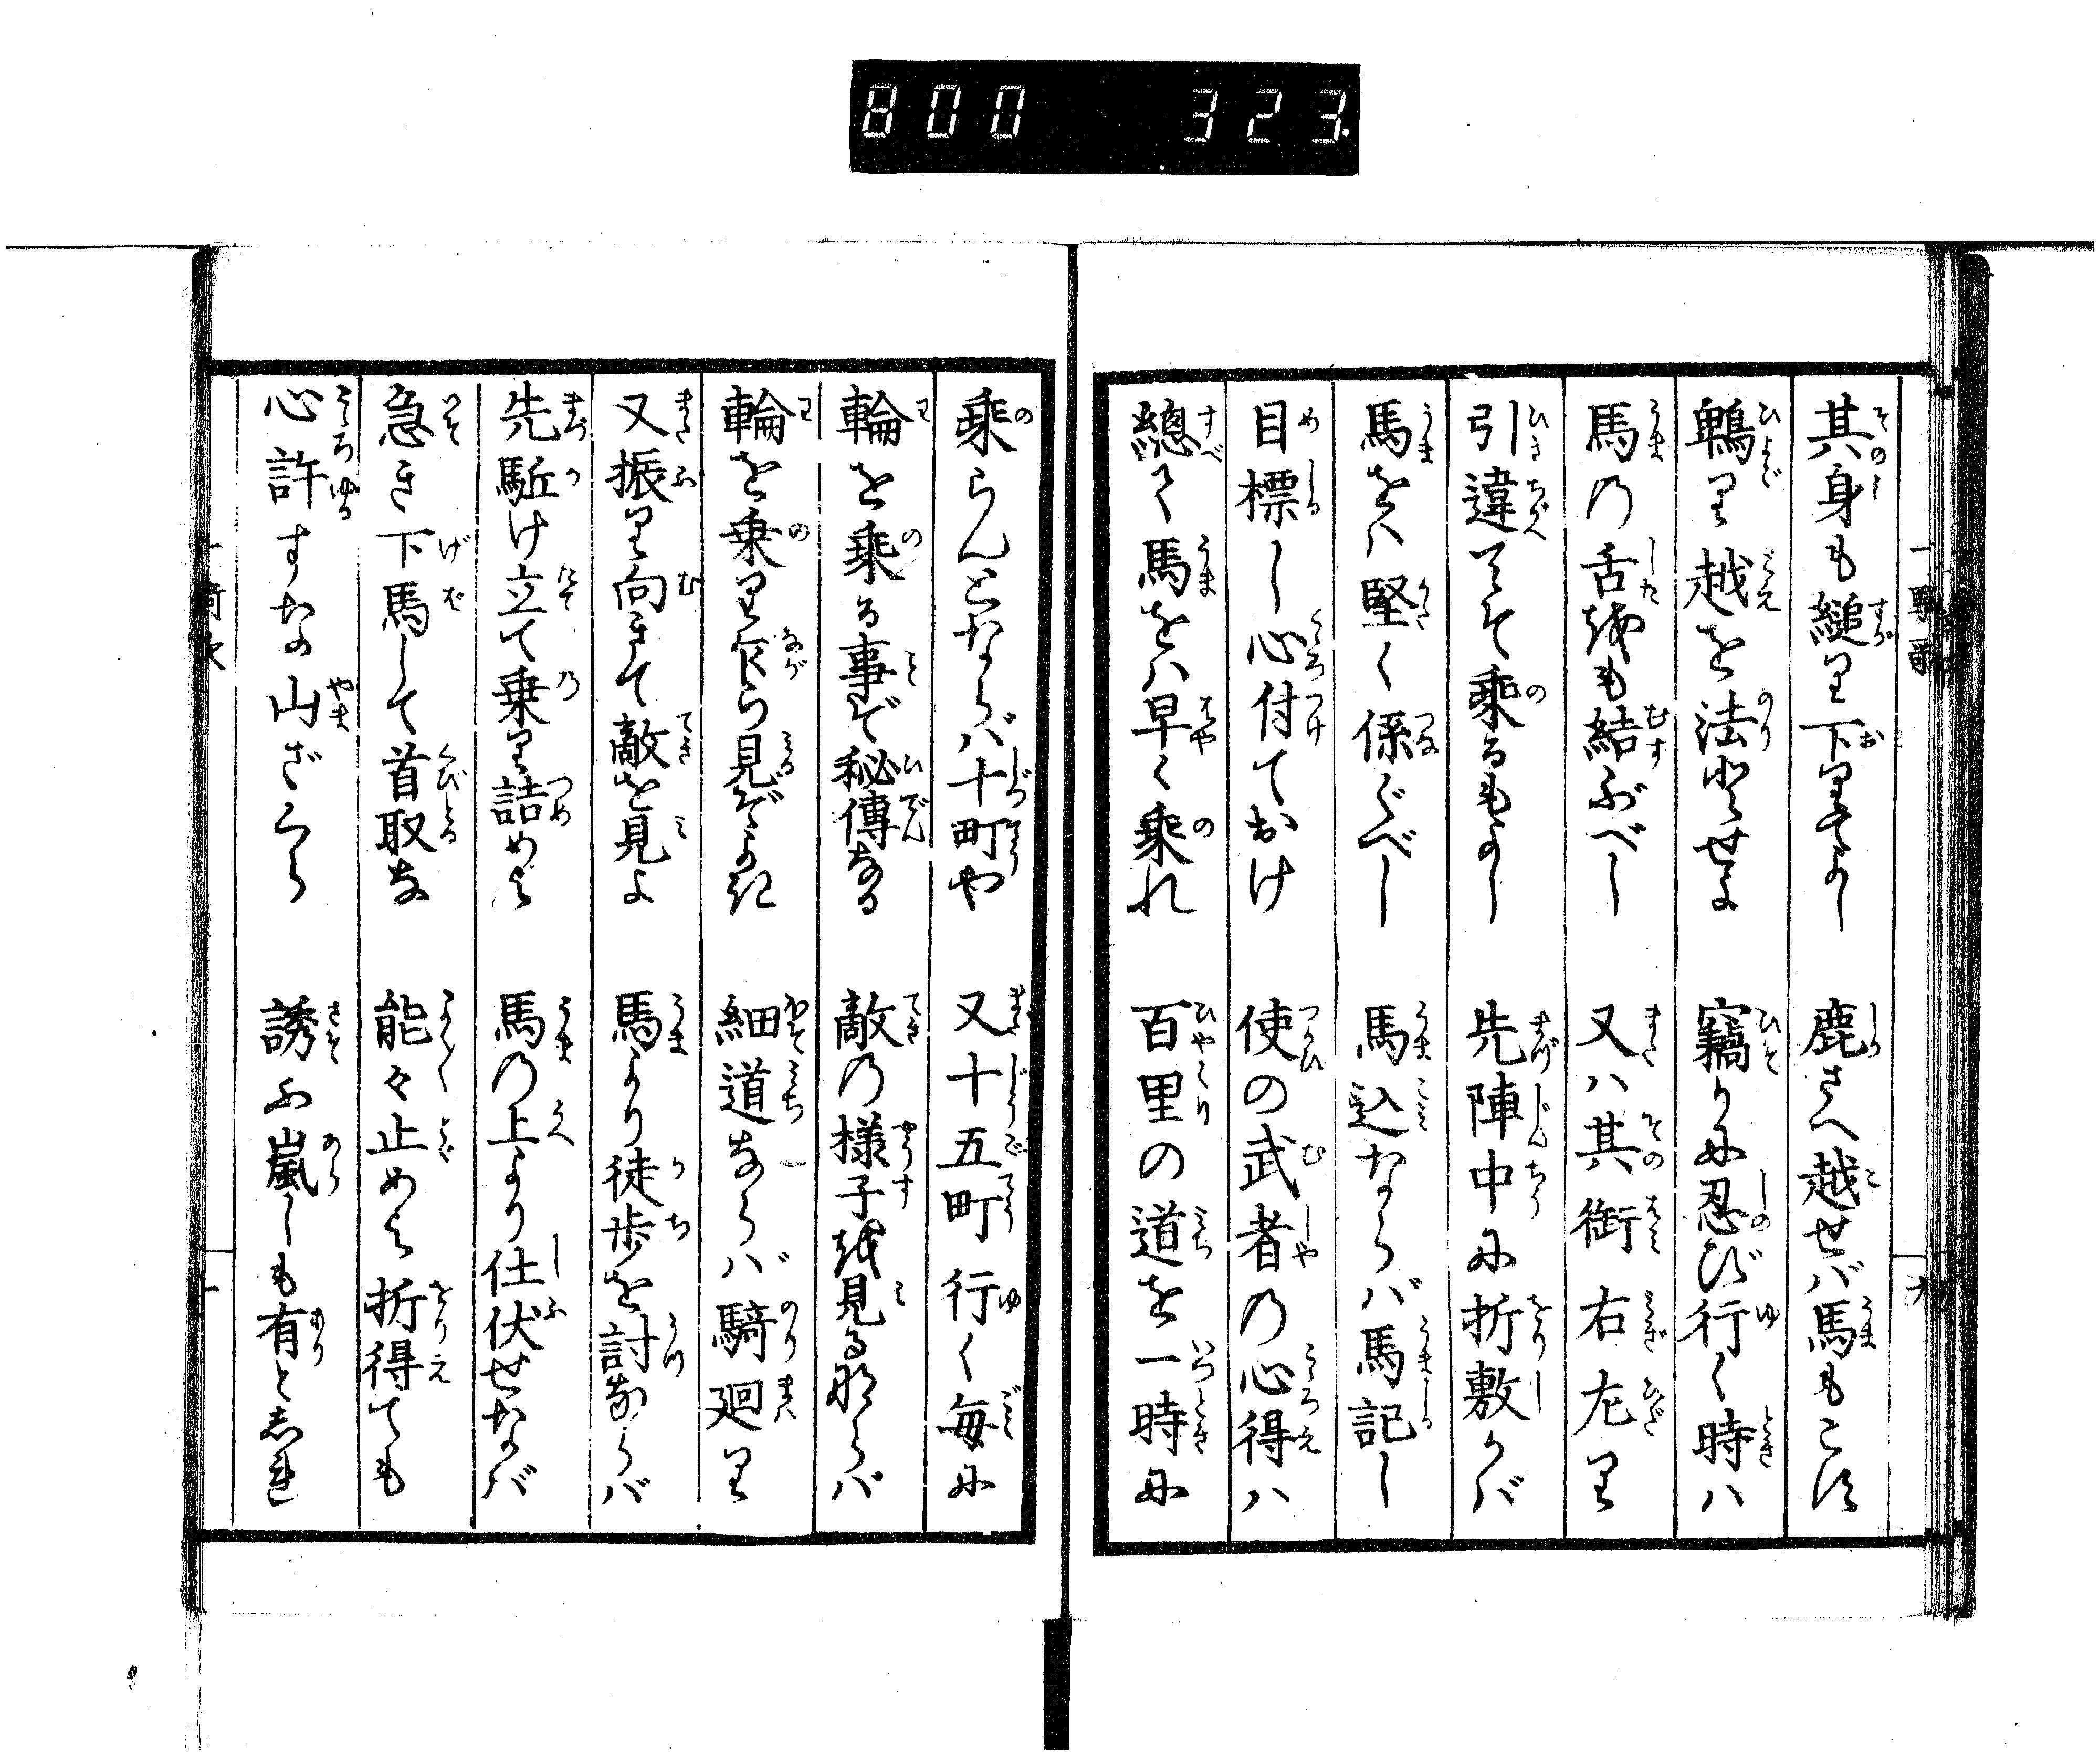 800 323.
其身も縋り下りてよし 鹿さへ越せバ馬もこす
鵯り越を法とせよ 竊かに忍び行く時ハ
馬の舌をも結ぶべし 又ハ其銜右左り
引違へて乘るもよし 先陣中に折敷かバ
馬をハ堅く係ぐべし 馬込ならバ馬記し
目標し心付ておけ 使の武者の心得ハ
總て馬をハ早く乘れ 百里の道を一時に
乘らんとならバ十町や 又十五町行く毎に
輪を乘る事ぞ秘傳なる 敵の様子を見るならバ
輪を乗り乍ら見ぞよき 細道ならバ騎廻り
又振り向きて敵を見よ 馬より徒歩を討ならバ
先駈け立て乗り詰めよ 馬の上より仕伏せなバ
急き下馬して首取な 能々止めよ折得ても
心許すな山ざくら 誘ふ嵐しも有としれ